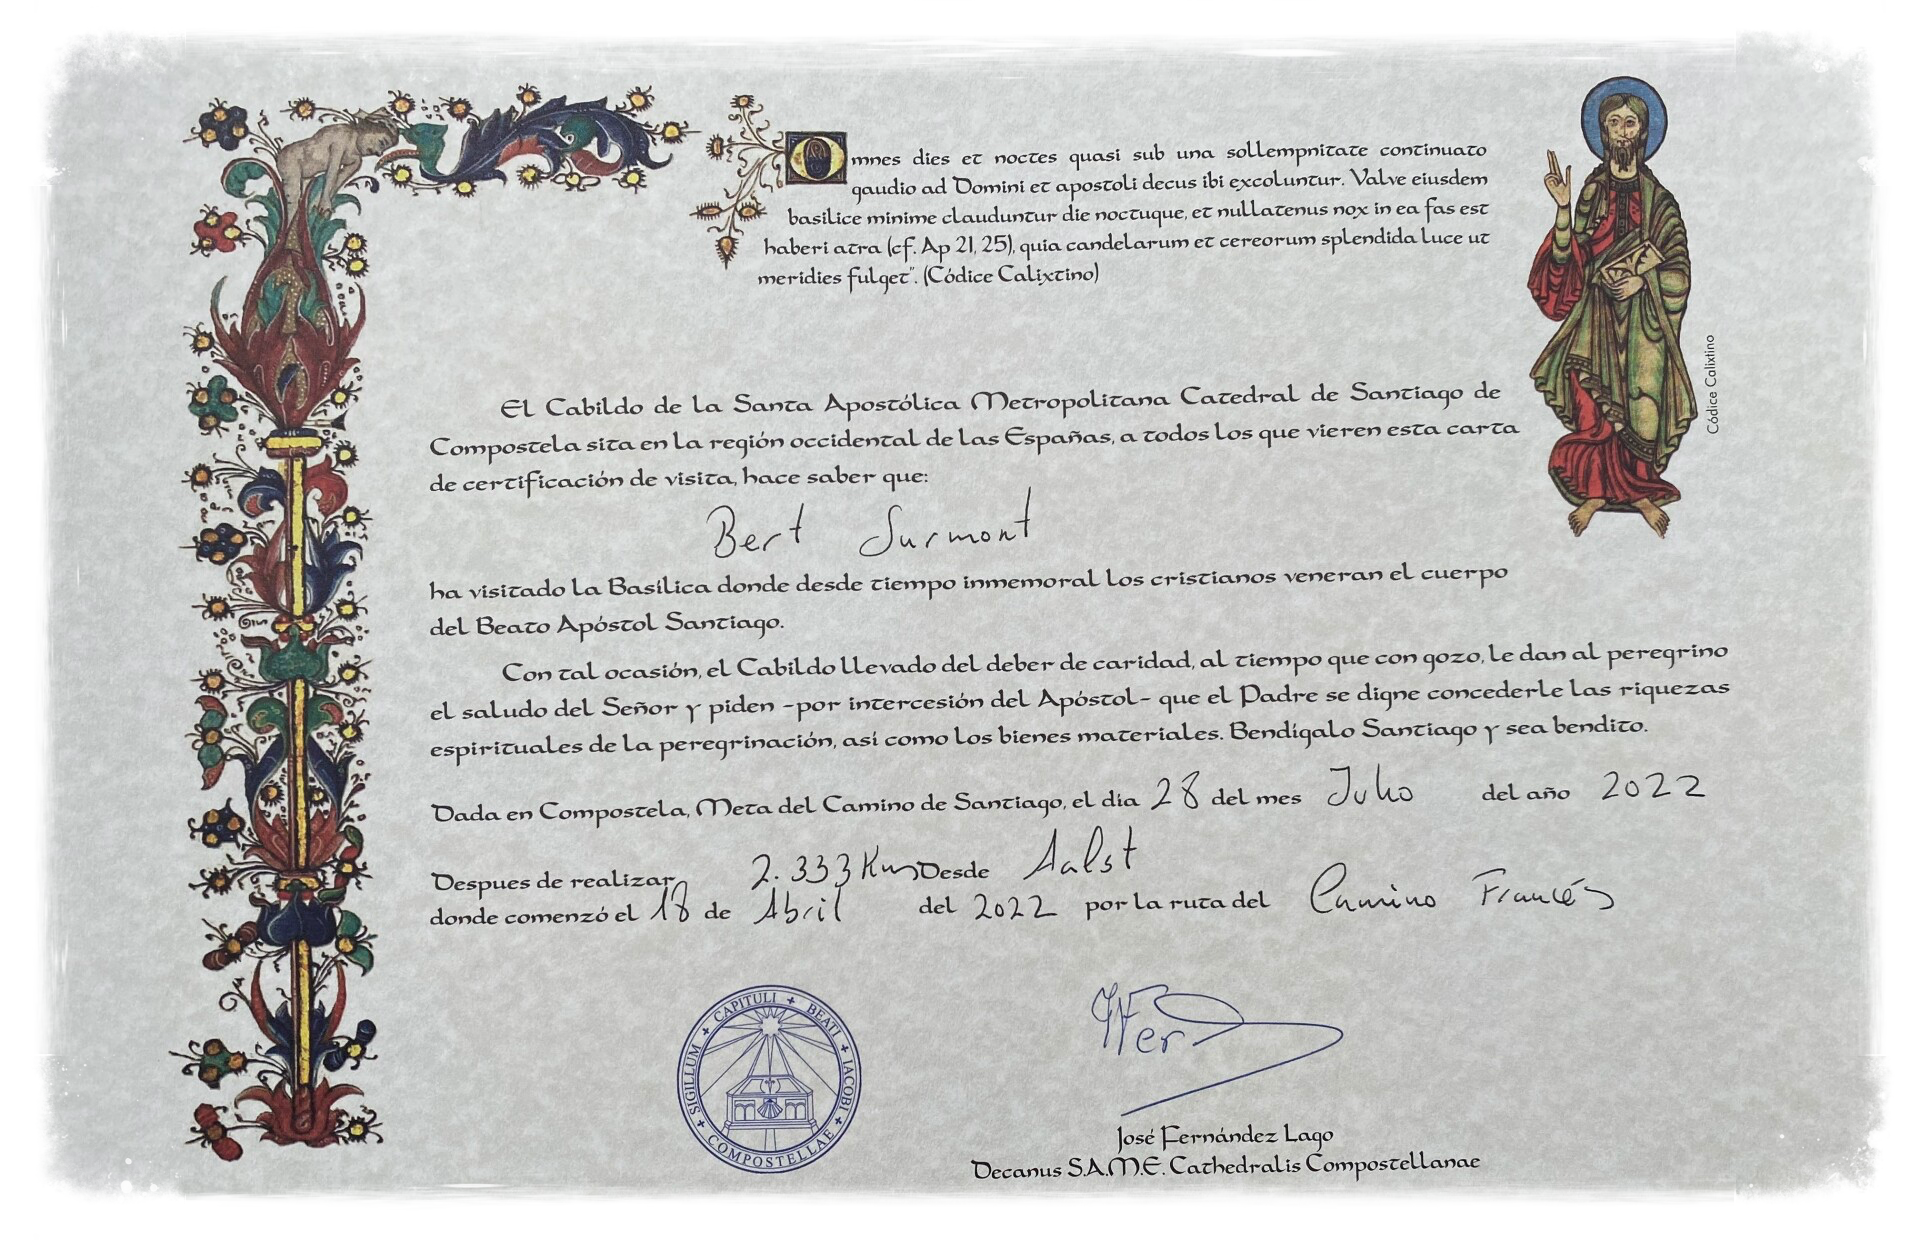 Omnes dies et noctes quasi sub una sollempnitate continuato
gaudio ad Domini et apostoli decus ibi excoluntur. Valve eiusdem
basilice minime clauduntur die noctuque, et nullatenus nox in ea fas est
haberi atra (cf. Ap 21, 25), quia candelarum et cereorum splendida luce ut
meridies fulget". (Códice Calixtino)
Códice Calixtino
El Cabildo de la Santa Apostólica Metropolitana Catedral de Santiago de
Compostela sita en la región occidental de las Españas, a todos los que vieren esta carta
de certificación de visita, hace saber que:
Bert Surmont
ha visitado la Basílica donde desde tiempo inmemoral los cristianos veneran el cuerpo
del Beato Apóstol Santiago.
Con tal ocasión, el Cabildo llevado del deber de caridad, al tiempo que con gozo, le dan al peregrino
el saludo del Señor y piden -por intercesión del Apóstol- que el Padre se digne concederle las riquezas
espirituales de la peregrinación, así como los bienes materiales. Bendígalo Santiago y sea bendito.
Dada en Compostela, Meta del Camino de Santiago, el día 28 del mes Julio del año 2022
Despues de realizar 2.333 Km Desde Aalst
donde comenzó el 18 de Abril del 2022 por la ruta del Camino Francés
SIGILLUM + CAPITULI + BEATI + IACOBI + COMPOSTELLAE +
José Fernández Lago
Decanus S.A.M.E. Cathedralis Compostellanae